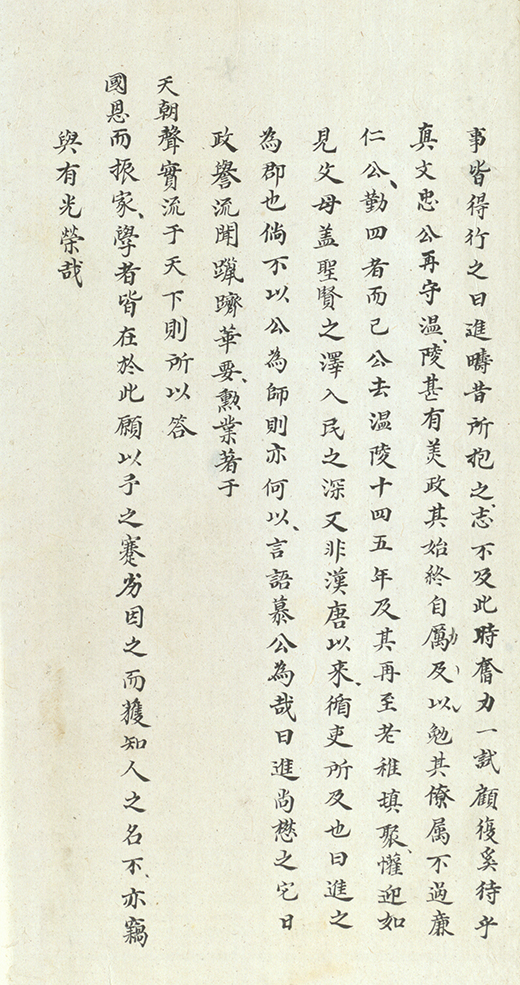 事皆得行之日進疇昔所抱之志不及此時奮力一試顧復奚待乎
真文忠公再守温陵甚有美政其始終自厲及以勉其僚属不過廉
仁公勤四者而已公去温陵十四五年及其再至老稚填聚懽迎如
見父母盖聖賢之澤入民之深又非漢唐以来循吏所及也日進之
為郡也倘不以公為師則亦何以言語慕公為哉日進尚懋之它日
政譽流聞躐躋華要勲業著于
天朝聲實流于天下則所以答
國恩而振家學者皆在於此顧以予之蹇劣因之而獲知人之名不亦竊
與有光榮哉